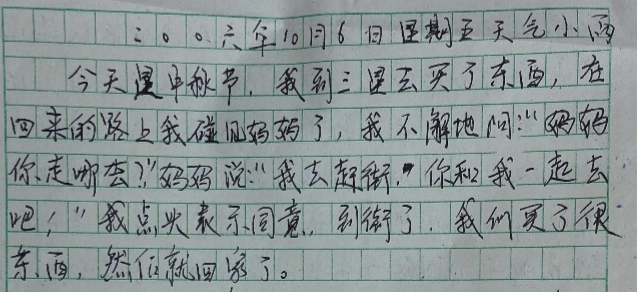 二〇〇六年10月6日星期五天气小雨
今天是中秋节，我到三里去买了东西，在
回来的路上我碰见妈妈了，我不解地问：“妈妈
你走哪去？”妈妈说：“我去赶街，”你和我一起去
吧！”我点头表示同意，到街了，我们买了很
东西，然后就回家了。